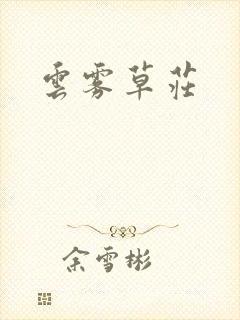 雲雾草莊
余雪彬